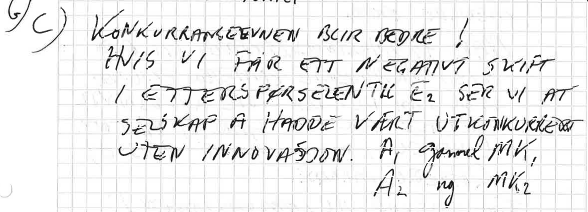 c) KONKURRANSEEVNEN BLIR BEDRE!
HVIS VI FÅR ETT NEGATIVT SKIFT
I ETTERSPØRSELEN TIL E₂ SER VI AT
SELSKAP A HADDE VÆRT UTKONKURRERT
UTEN INNOVASJON. A₁ gammel MK₁
A₂ ny MK₂